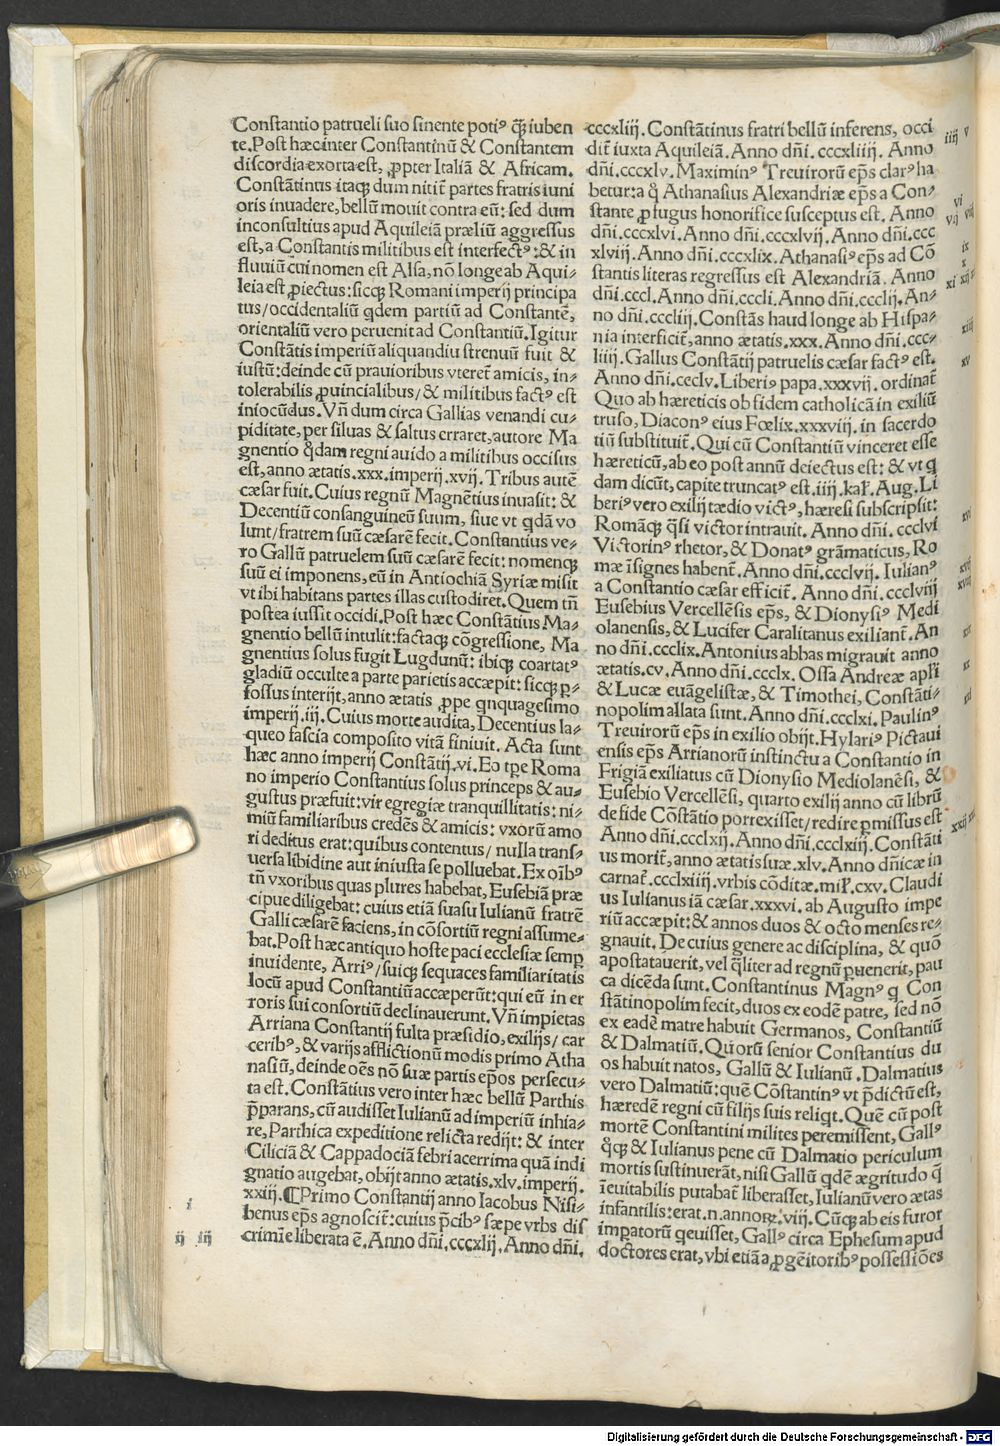 Constantio patrueli suo sinente potiꝰ q̃ȝ iuben
te. Post hæc inter Constantinũ & Constantem
discordia exorta est, ꝓpter Italiã & Africam.
Constãtinus itaqȝ dum nitit̃ partes fratris iuni
oris inuadere, bellũ mouit contra eũ: sed dum
inconsultius apud Aquileiã præliũ aggressus
est, a Constantis militibus est interfectꝰ: & in
fluuiũ cui nomen est Alsa, nõ longe ab Aqui⸗
leia est ꝓiectus: sicqȝ Romani imperij principa
tus/ occidentaliũ qdem partiũ ad Constantẽ,
orientaliũ vero peruenit ad Constantiũ. Igitur
Constãtis imperiũ aliquandiu strenuũ fuit &
iustũ: deinde cũ prauioribus vteret̃ amicis, in⸗
tolerabilis ꝓuincialibus/ & militibus factꝰ est
iniocũdus. Vñ dum circa Gallias venandi cu⸗
piditate, per siluas & saltus erraret, autore Ma
gnentio q̃dam regni auido a militibus occisus
est, anno ætatis .xxx. imperij .xvij. Tribus autẽ
cæsar fuit. Cuius regnũ Magnẽtius inuasit: &
Decentiũ consanguineũ suum, siue vt qdã vo
lunt/ fratrem suũ cæsarẽ fecit. Constantius ve⸗
ro Gallũ patruelem suũ cæsarẽ fecit: nomenqȝ
suũ ei imponens, eũ in Antiochiã Syriæ misit
vt ibi habitans partes illas custodiret. Quem tñ
postea iussit occidi. Post hæc Constãtius Ma⸗
gnentio bellũ intulit: factaqȝ cõgressione, Ma
gnentius solus fugit Lugdunũ: ibiqȝ coartatꝰ
gladiũ occulte a parte parietis accæpit: sicqȝ ꝑ⸗
fossus interijt, anno ætatis ꝓpe qnquagesimo
imperij .iij. Cuius morte audita, Decentius la⸗
queo fascia composito vitã finiuit. Acta sunt
hæc anno imperij Constãtij .vi. Eo tꝑe Roma
no imperio Constantius solus princeps & au⸗
gustus præfuit: vir egregiæ tranquillitatis: ni⸗
miũ familiaribus credẽs & amicis: vxorũ amo
ri deditus erat: quibus contentus/ nulla trans⸗
uersa libidine aut iniusta se polluebat. Ex oĩbꝰ
tñ vxoribus quas plures habebat, Eusebiã præ
cipue diligebat: cuius etiã suasu Iulianũ fratrẽ
Galli cæsarẽ faciens, in cõsortiũ regni assume⸗
bat. Post hæc antiquo hoste paci ecclesiæ semꝑ
inuidente, Arriꝰ/ suiqȝ sequaces familiaritatis
locũ apud Constantiũ accæperũt: qui eũ in er
roris sui consortiũ declinauerunt. Vñ impietas
Arriana Constantij fulta præsidio, exilijs/ car
ceribꝰ, & varijs afflictionũ modis primo Atha
nasiũ, deinde oẽs nõ suæ partis ep̃os persecu⸗
ta est. Constãtius vero inter hæc bellũ Parthis
p̃parans, cũ audisset Iulianũ ad imperiũ inhia⸗
re, Parthica expeditione relicta redijt: & inter
Ciliciã & Cappadociã febri acerrima quã indi
gnatio augebat, obijt anno ætatis .xlv. imperij.
xxiij. ¶Primo Constantij anno Iacobus Nisi⸗
benus ep̃s agnoscit̃: cuius p̃cibꝰ sæpe vrbs dis
crimĩe liberata ẽ. Anno dñi. cccxlij. Anno dñi.
i
ij iij
cccxliij. Constãtinus fratri bellũ inferens, occi
dit̃ iuxta Aquileiã. Anno dñi. cccxliiij. Anno
dñi. cccxlv. Maximinꝰ Treuirorũ ep̃s clarꝰ ha
betur: a q̃ Athanasius Alexandriæ ep̃s a Con⸗
stante ꝓfugus honorifice susceptus est. Anno
dñi. cccxlvi. Anno dñi. cccxlvij. Anno dñi. ccc
xlviij. Anno dñi. cccxlix. Athanasiꝰ ep̃s ad Cõ
stantis literas regressus est Alexandriã. Anno
dñi. cccl. Anno dñi. cccli. Anno dñi. ccclij. An⸗
no dñi. cccliij. Constãs haud longe ab Hispa⸗
nia interficit̃, anno ætatis .xxx. Anno dñi. ccc⸗
liiij. Gallus Constãtij patruelis cæsar factꝰ est.
Anno dñi. ccclv. Liberiꝰ papa .xxxvij. ordinat̃
Quo ab hæreticis ob fidem catholicã in exiliũ
truso, Diaconꝰ eius Fœlix .xxxviij. in sacerdo
tiũ substituit̃. Qui cũ Constantiũ vinceret esse
hæreticũ, ab eo post annũ deiectus est: & vt q
dam dicũt, capite truncatꝰ est .iiij. kal. Aug. Li
beriꝰ vero exilij tædio victꝰ, hæresi subscripsit:
Romãqȝ q̃si victor intrauit. Anno dñi. ccclvi
Victorinꝰ rhetor, & Donatꝰ grãmaticus, Ro
mæ ĩsignes habent̃. Anno dñi. ccclvij. Iulianꝰ
a Constantio cæsar efficit̃. Anno dñi. ccclviij
Eusebius Vercellẽsis ep̃s, & Dionysiꝰ Medi
olanensis, & Lucifer Caralitanus exiliant̃. An
no dñi. ccclix. Antonius abbas migrauit anno
ætatis. cv. Anno dñi. ccclx. Ossa Andreæ apl̃i
& Lucæ euãgelistæ, & Timothei, Constãti⸗
nopolim allata sunt. Anno dñi. ccclxi. Paulinꝰ
Treuirorũ ep̃s in exilio obijt. Hylariꝰ Pictaui
ensis ep̃s Arrianorũ instinctu a Constantio in
Frigiã exiliatus cũ Dionysio Mediolanẽsi, &
Eusebio Vercellẽsi, quarto exilij anno cũ librũ
de fide Cõstãtio porrexisset/ redire ꝑmissus est
Anno dñi. ccclxij. Anno dñi. ccclxiij. Constãti
us morit̃, anno ætatis suæ .xlv. Anno dñicæ in
carnat̃. ccclxiiij. vrbis cõditæ. mil̃. cxv. Claudi
us Iulianus iã cæsar .xxxvi. ab Augusto impe
riũ accæpit: & annos duos & octo menses re⸗
gnauit. De cuius genere ac disciplina, & quõ
apostatauerit, vel q̃liter ad regnũ ꝑuenerit, pau
ca dicẽda sunt. Constantinus Magnꝰ q Con
stãtinopolim fecit, duos ex eodẽ patre, sed nõ
ex eadẽ matre habuit Germanos, Constantiũ
& Dalmatiũ. Quorũ senior Constantius du
os habuit natos, Gallũ & Iulianũ. Dalmatius
vero Dalmatiũ: quẽ Cõstantinꝰ vt p̃dictũ est,
hæredẽ regni cũ filijs suis reliqt. Quẽ cũ post
mortẽ Constantini milites peremissent, Gallꝰ
q̃qȝ & Iulianus pene cũ Dalmatio periculum
mortis sustinuerãt, nisi Gallũ qdẽ ægritudo q̃
ĩeuitabilis putabat̃ liberasset, Iulianũ vero ætas
infantilis: erat .n. annoꝝ .viij. Cũqȝ ab eis furor
imꝑatorũ qeuisset, Gallꝰ circa Ephesum apud
doctores erat, vbi etiã a ꝓgẽitoribꝰ possessiões
iiij v
vi
vij viij
ix
x
xi xij
xiij
xv
xvi
xvij
xviij
xix
xx
xxi
xxij
Digitalisierung gefördert durch die Deutsche Forschungsgemeinschaft - DFG